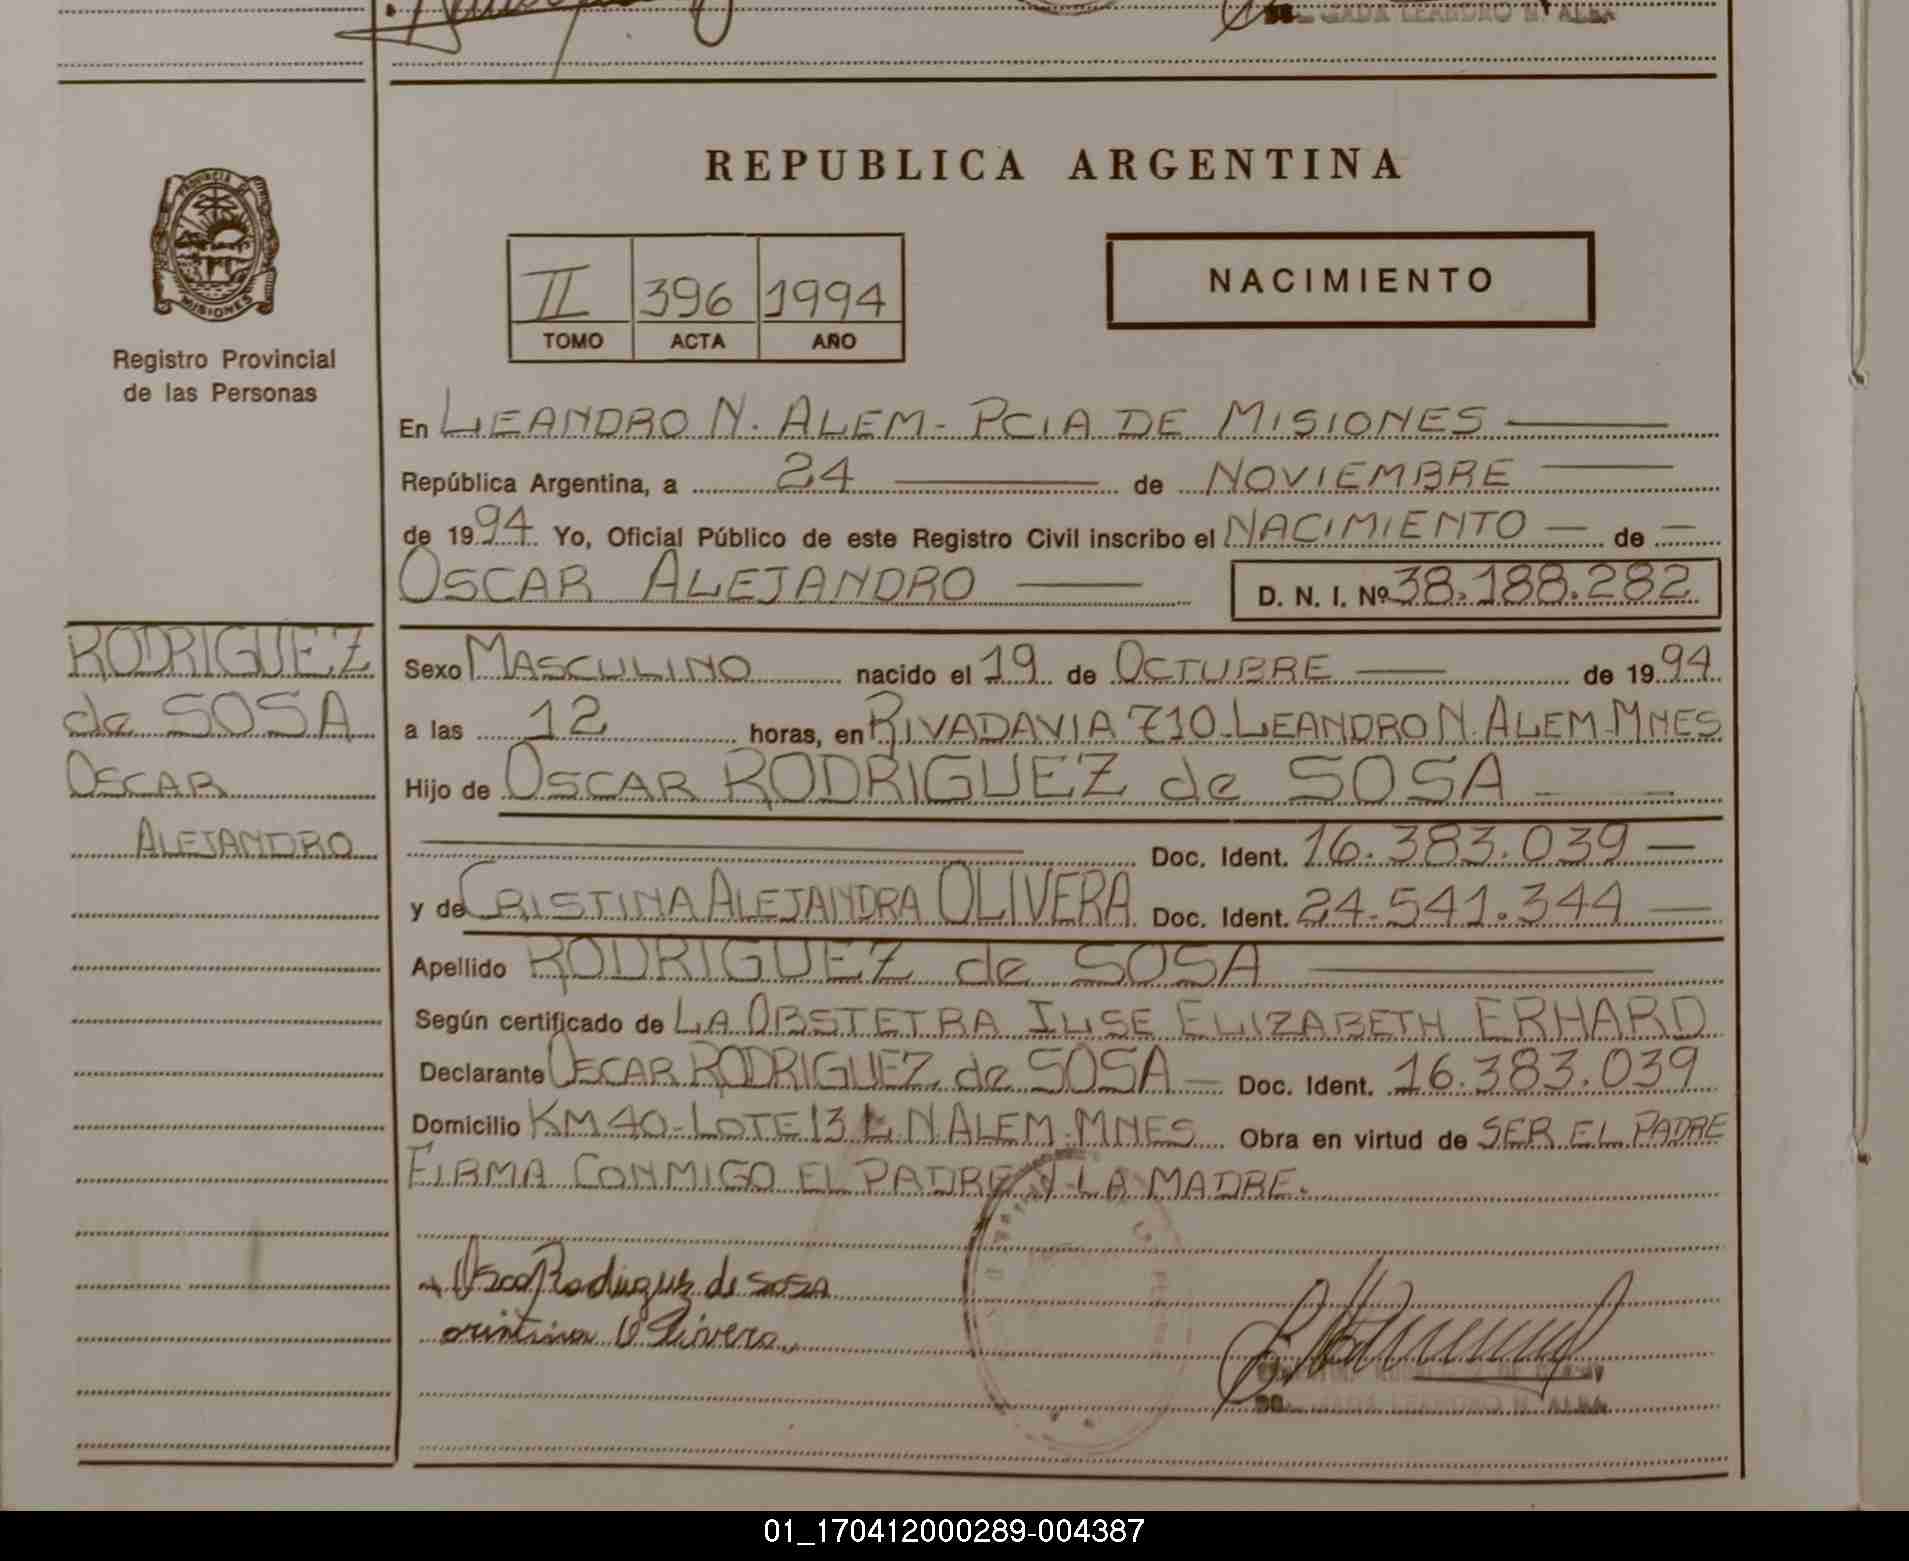 LEANDRO N. ALEM
REPUBLICA ARGENTINA
PROVINCIA DE
MISIONES
Registro Provincial
de las Personas
II 396 1994
TOMO ACTA AÑO
NACIMIENTO
En LEANDRO N. ALEM - PCIA DE MISIONES
República Argentina, a 24 de NOVIEMBRE
de 1994 Yo, Oficial Público de este Registro Civil inscribo el NACIMIENTO — de —
OSCAR ALEJANDRO D. N. I. Nº 38.188.282
RODRIGUEZ
de SOSA
OSCAR
ALEJANDRO
Sexo MASCULINO nacido el 19 de OCTUBRE de 1994
a las 12 horas, en RIVADAVIA 710 - LEANDRO N. ALEM - MNES
Hijo de OSCAR RODRIGUEZ de SOSA
Doc. Ident. 16.383.039 —
y de CRISTINA ALEJANDRA OLIVERA Doc. Ident. 24.541.344 —
Apellido RODRIGUEZ de SOSA
Según certificado de LA OBSTETRA ILSE ELIZABETH ERHARD
Declarante OSCAR RODRIGUEZ de SOSA — Doc. Ident. 16.383.039
Domicilio KM 40 - LOTE 13 L N ALEM - MNES Obra en virtud de SER EL PADRE
FIRMA CONMIGO EL PADRE Y LA MADRE.
Rodriguez de SOSA
Olivera
01_170412000289-004387